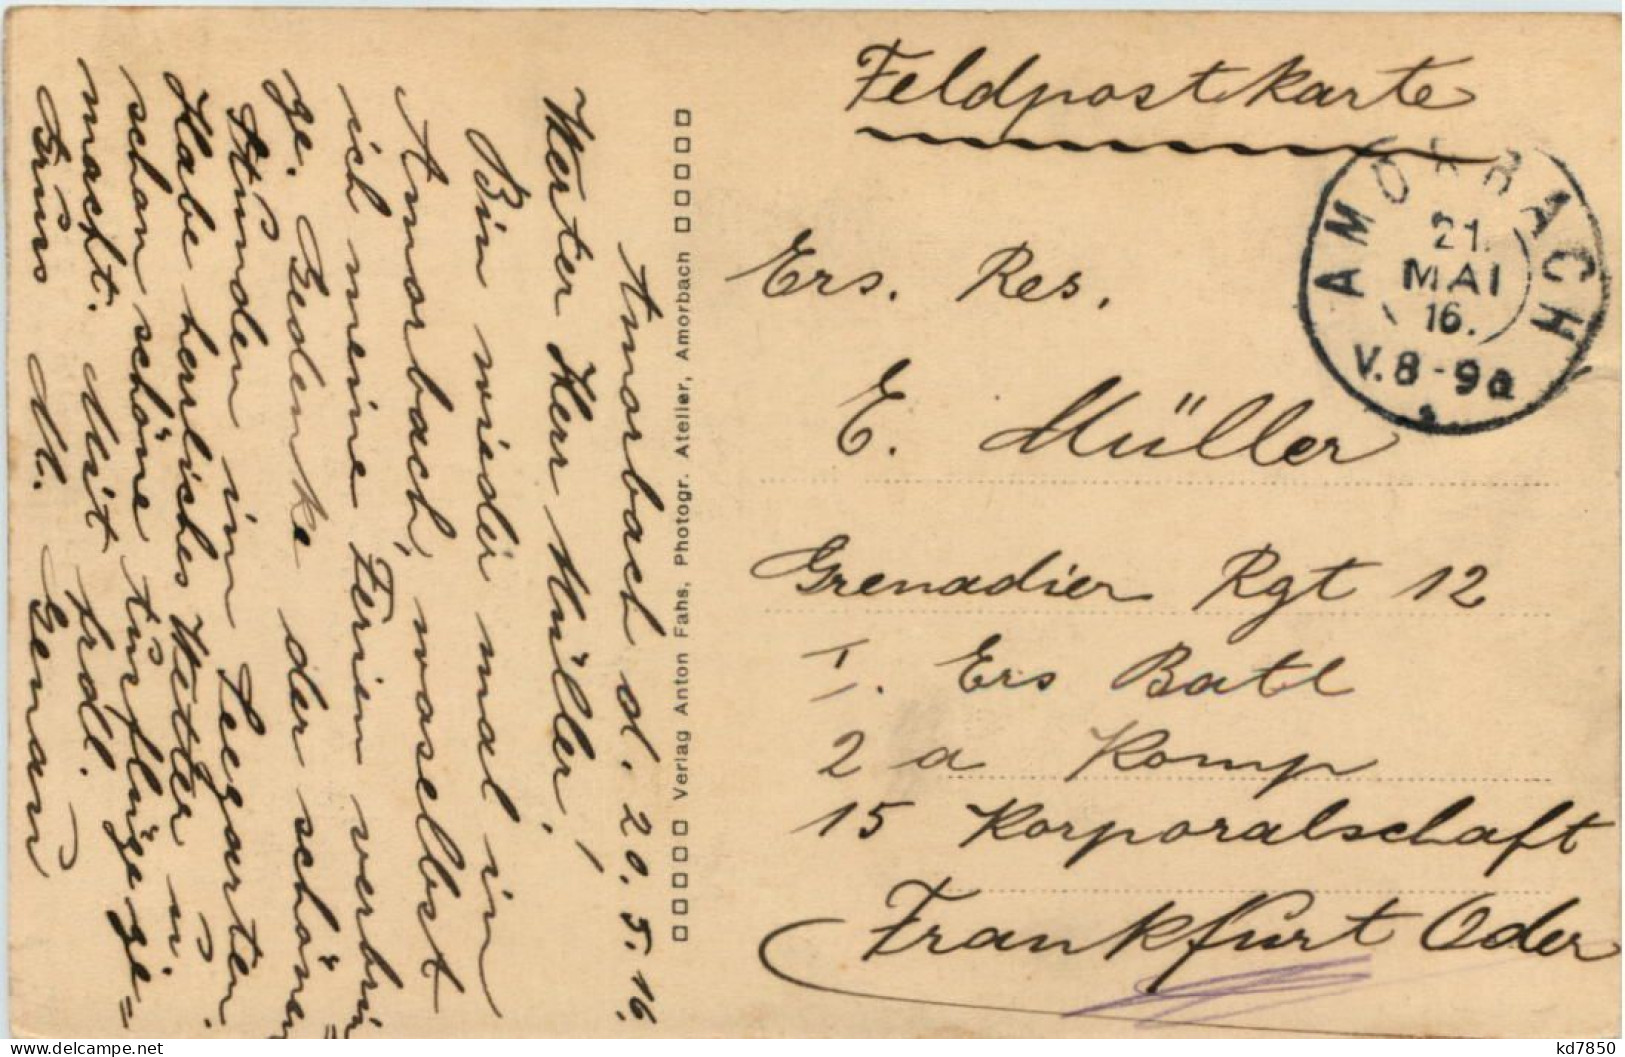 Feldpostkarte
AMORBACH
21.
MAI
16.
V.8-9a
Ers. Res.
E. Müller
Grenadier Rgt 12
I. Ers Batl
2 a Komp
15 Korporalschaft
Frankfurt Oder
Verlag Anton Fahs, Photogr. Atelier, Amorbach
Amorbach d. 20.5.16.
Werter Herr Müller!
Bin wieder mal in
Amorbach, woselbst
ich meine Ferien verbrin=
ge. Gedenke der schönen
Stunden im Seegarten.
Habe herrliches Wetter u.
schon schöne Ausflüge ge=
macht. Mit frdl.
Gruss M.
kd7850
delcampe.net